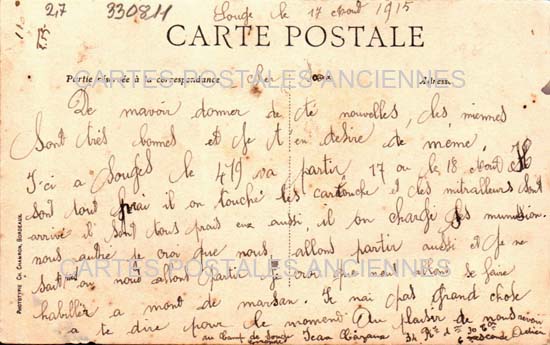 217 33084 Souge le 17 Aout 1915
CARTE POSTALE
Partie réservée à la correspondance
Adresse
CARTES POSTALES ANCIENNES
De mavoir donner de té nouvelles, les miennes
sont très bonnes et je t'en desire de meme.
I-ci a Souges le 419 va partir 17 ou le 18 Aout
sont tout il on touché les cartouche et les mitrailleurs sont
arrivé il sont tous prais eux aussi, il on chargé les munission.
nous autre je cror que nous allons partir aussi et Je ne
sait ou nous allons partir Je cror que nous allons se faire
CARTES POSTALES ANCIENNES
habiller a mont de marsan. Je nai pas Grand chose
a te dire pour le moment Au plaisir de nous revoir
au Camp de Souge Jean Cazaux 34 Rt d'
PHOTOTYPIE CH. CHAMBON, BORDEAUX